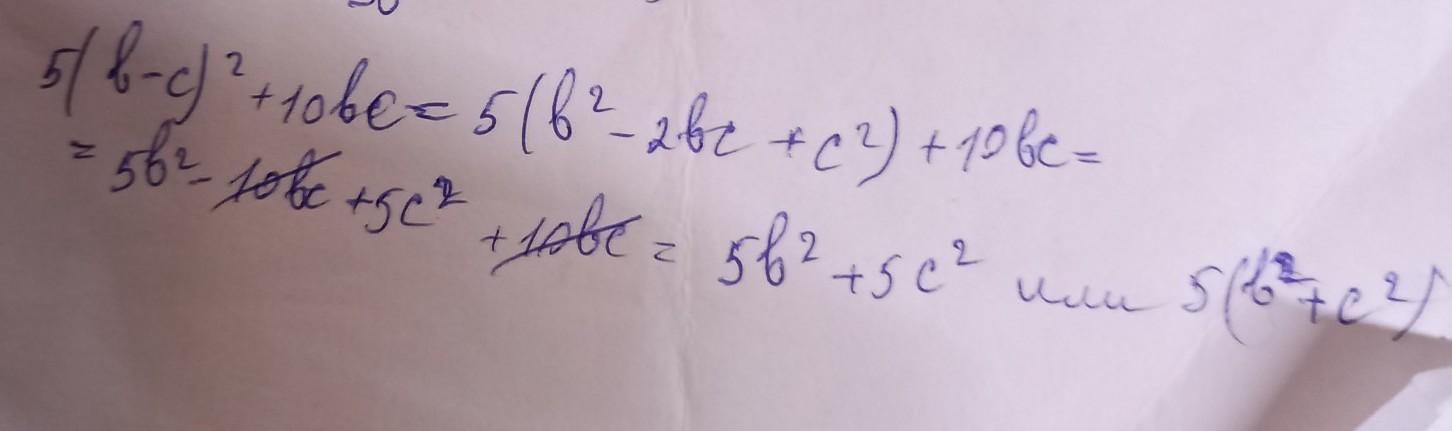 5(b-c)² +10bc = 5(b² - 2bc + c²) + 10bc =
= 5b² - 10bc + 5c² + 10bc = 5b² + 5c² или 5(b² + c²)